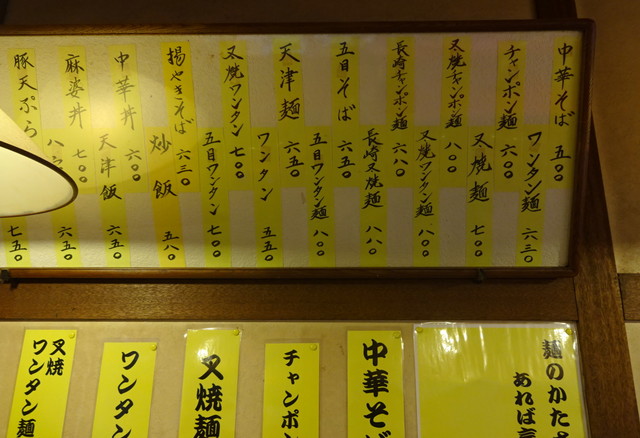 中華そば 五〇〇
ワンタン麺 六三〇
チャンポン麺 六〇〇
叉焼麺 七〇〇
叉焼チャンポン麺 八〇〇
叉焼ワンタン麺 八〇〇
長崎チャンポン麺 六八〇
長崎叉焼麺 八八〇
五目そば 六五〇
五目ワンタン麺 八〇〇
天津麺 六五〇
ワンタン 五五〇
叉焼ワンタン 七〇〇
五目ワンタン 七〇〇
揚やきそば 六三〇
炒飯 五八〇
中華丼 六〇〇
天津飯 六五〇
麻婆丼 七〇〇
六五〇
豚天ぷら
七五〇
麺のかた
あれば
中華そば
チャンポン
叉焼麺
ワンタン
叉焼
ワンタン麺